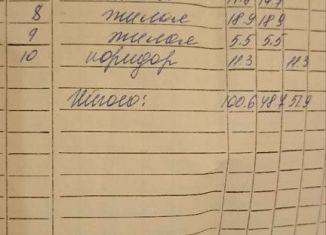 8 жилая 18.9 18.9
9 жилая 5.5 5.5
10 коридор 11.3 11.3
Итого: 100.6 48.7 51.9